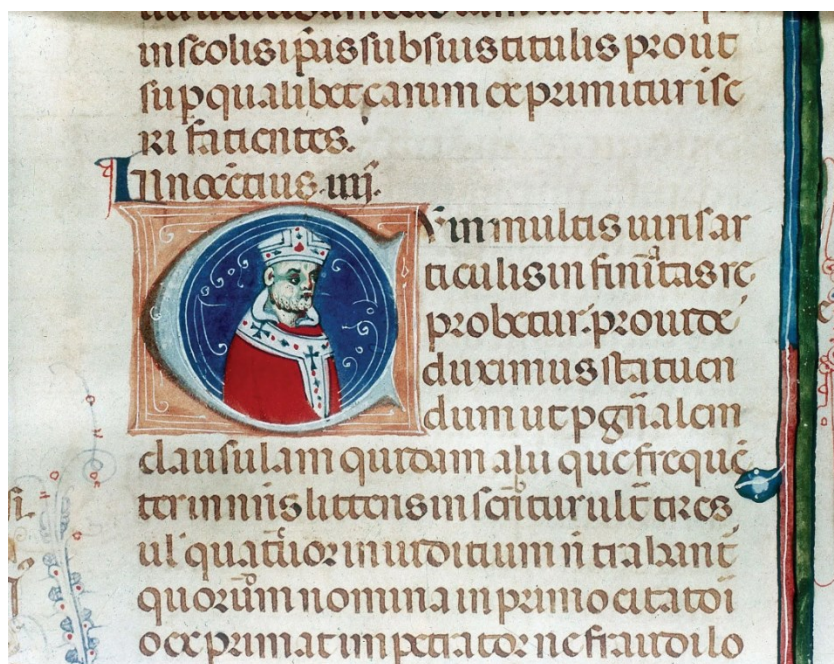 in scolis ip̄as sub suis titulis prout
sup qualibet earum exprimitur ise
ri facientes.
Innocētius iiij.
Cum in multis iuris ar
ticulis infinitas re
probetur. prouide
duximus statuen
dum ut p gn̄alem
clausulam quidam alii que frequē
ter in nr̄is litteris inscribitur ultͥ tres
ul' quatuor in iuditium n̄ trahant̄
quorum nomina in primo citatoi
o exprimat impetrator ne fraudi lo